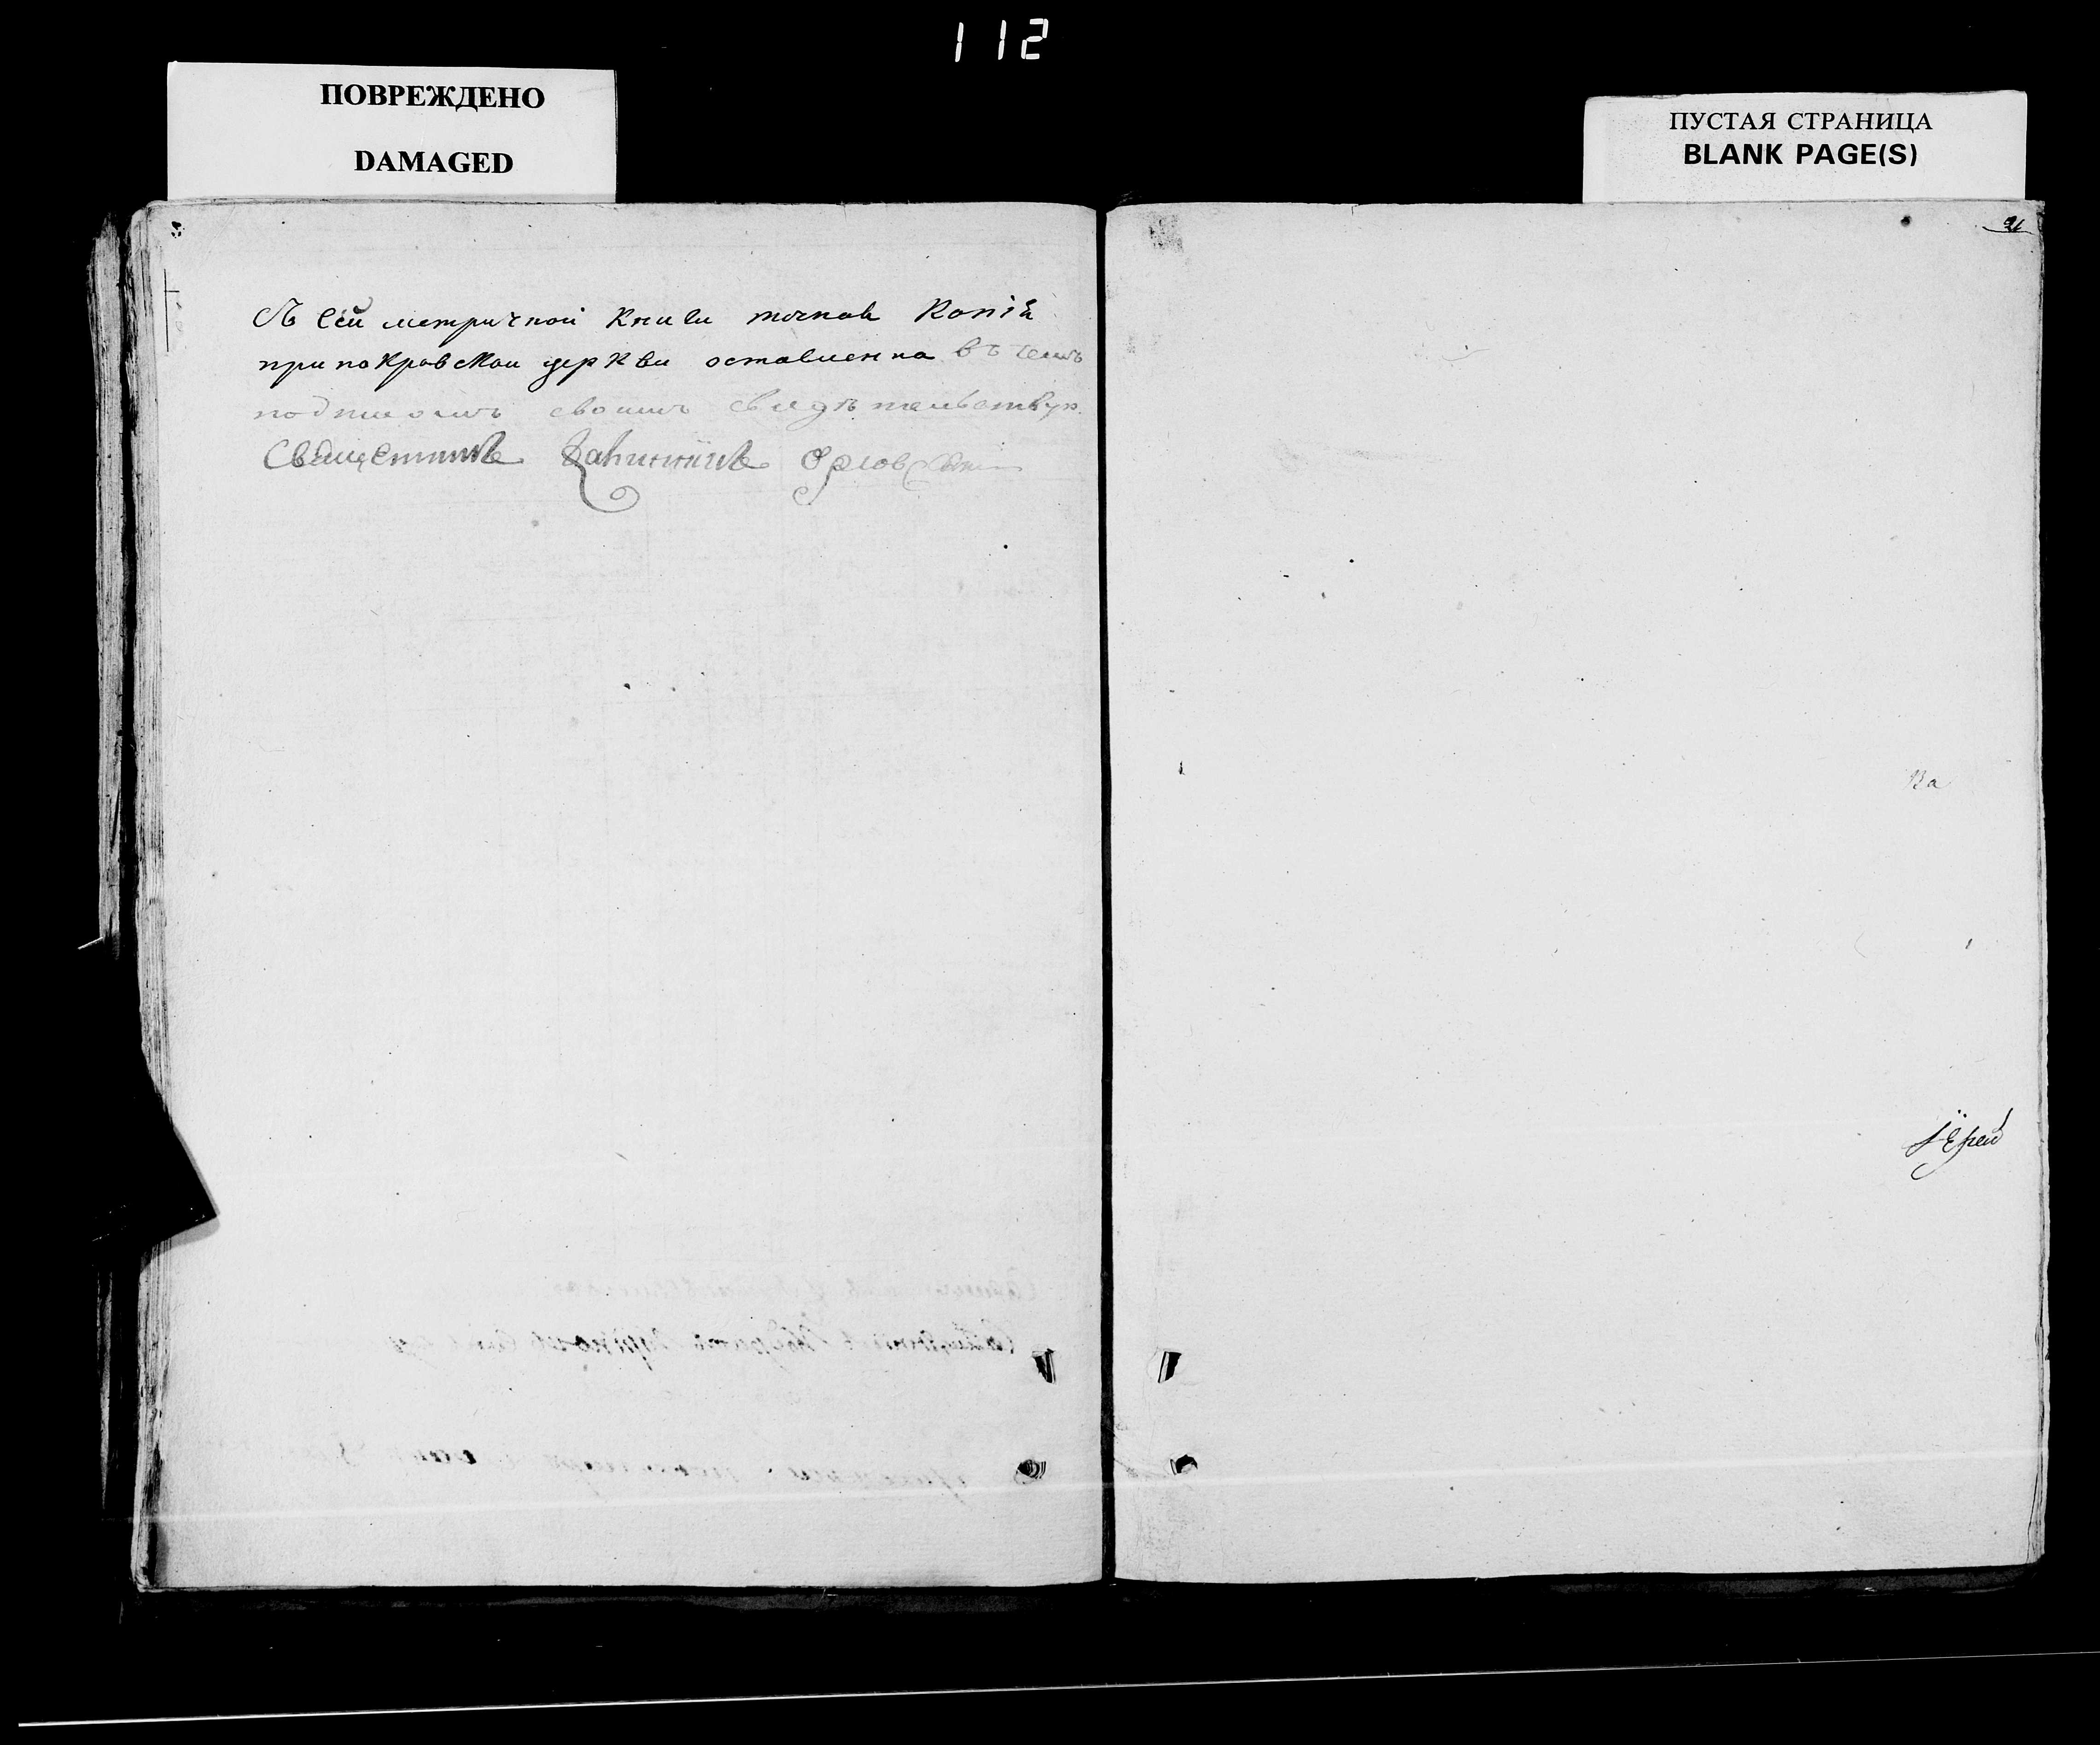 112
ПОВРЕЖДЕНО
DAMAGED
ПУСТАЯ СТРАНИЦА
BLANK PAGE(S)
Съ сей метричной книги точная копія
при покровской церкви оставленна въ чемъ
подписомъ своимъ свидѣтельствую
Священникъ Орловскій
21
Ва
Іерей